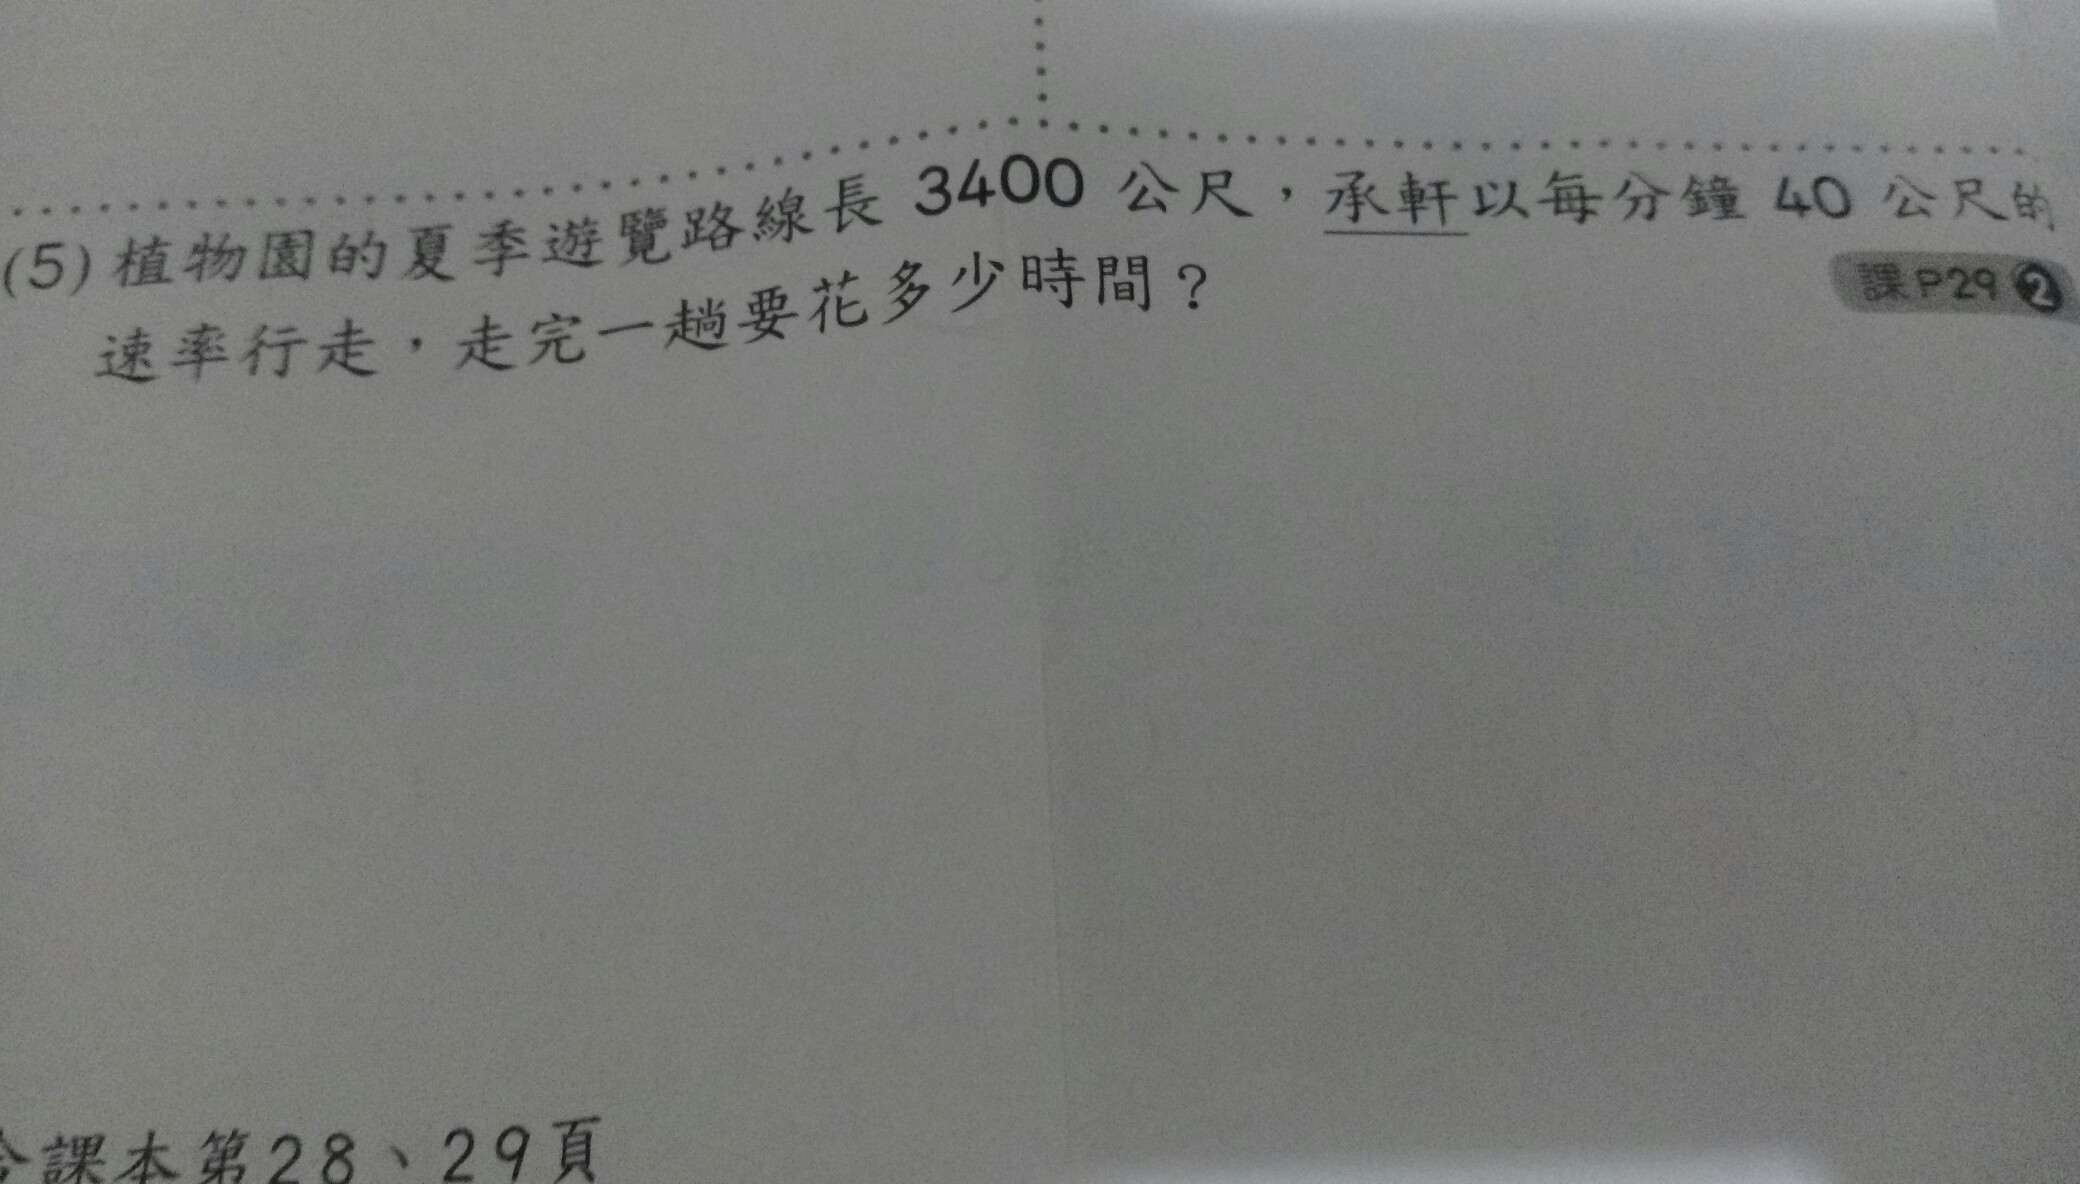 (5) 植物園的夏季遊覽路線長 3400 公尺，承軒以每分鐘 40 公尺的
速率行走，走完一趟要花多少時間？
課P29 ❷
合課本第28、29頁